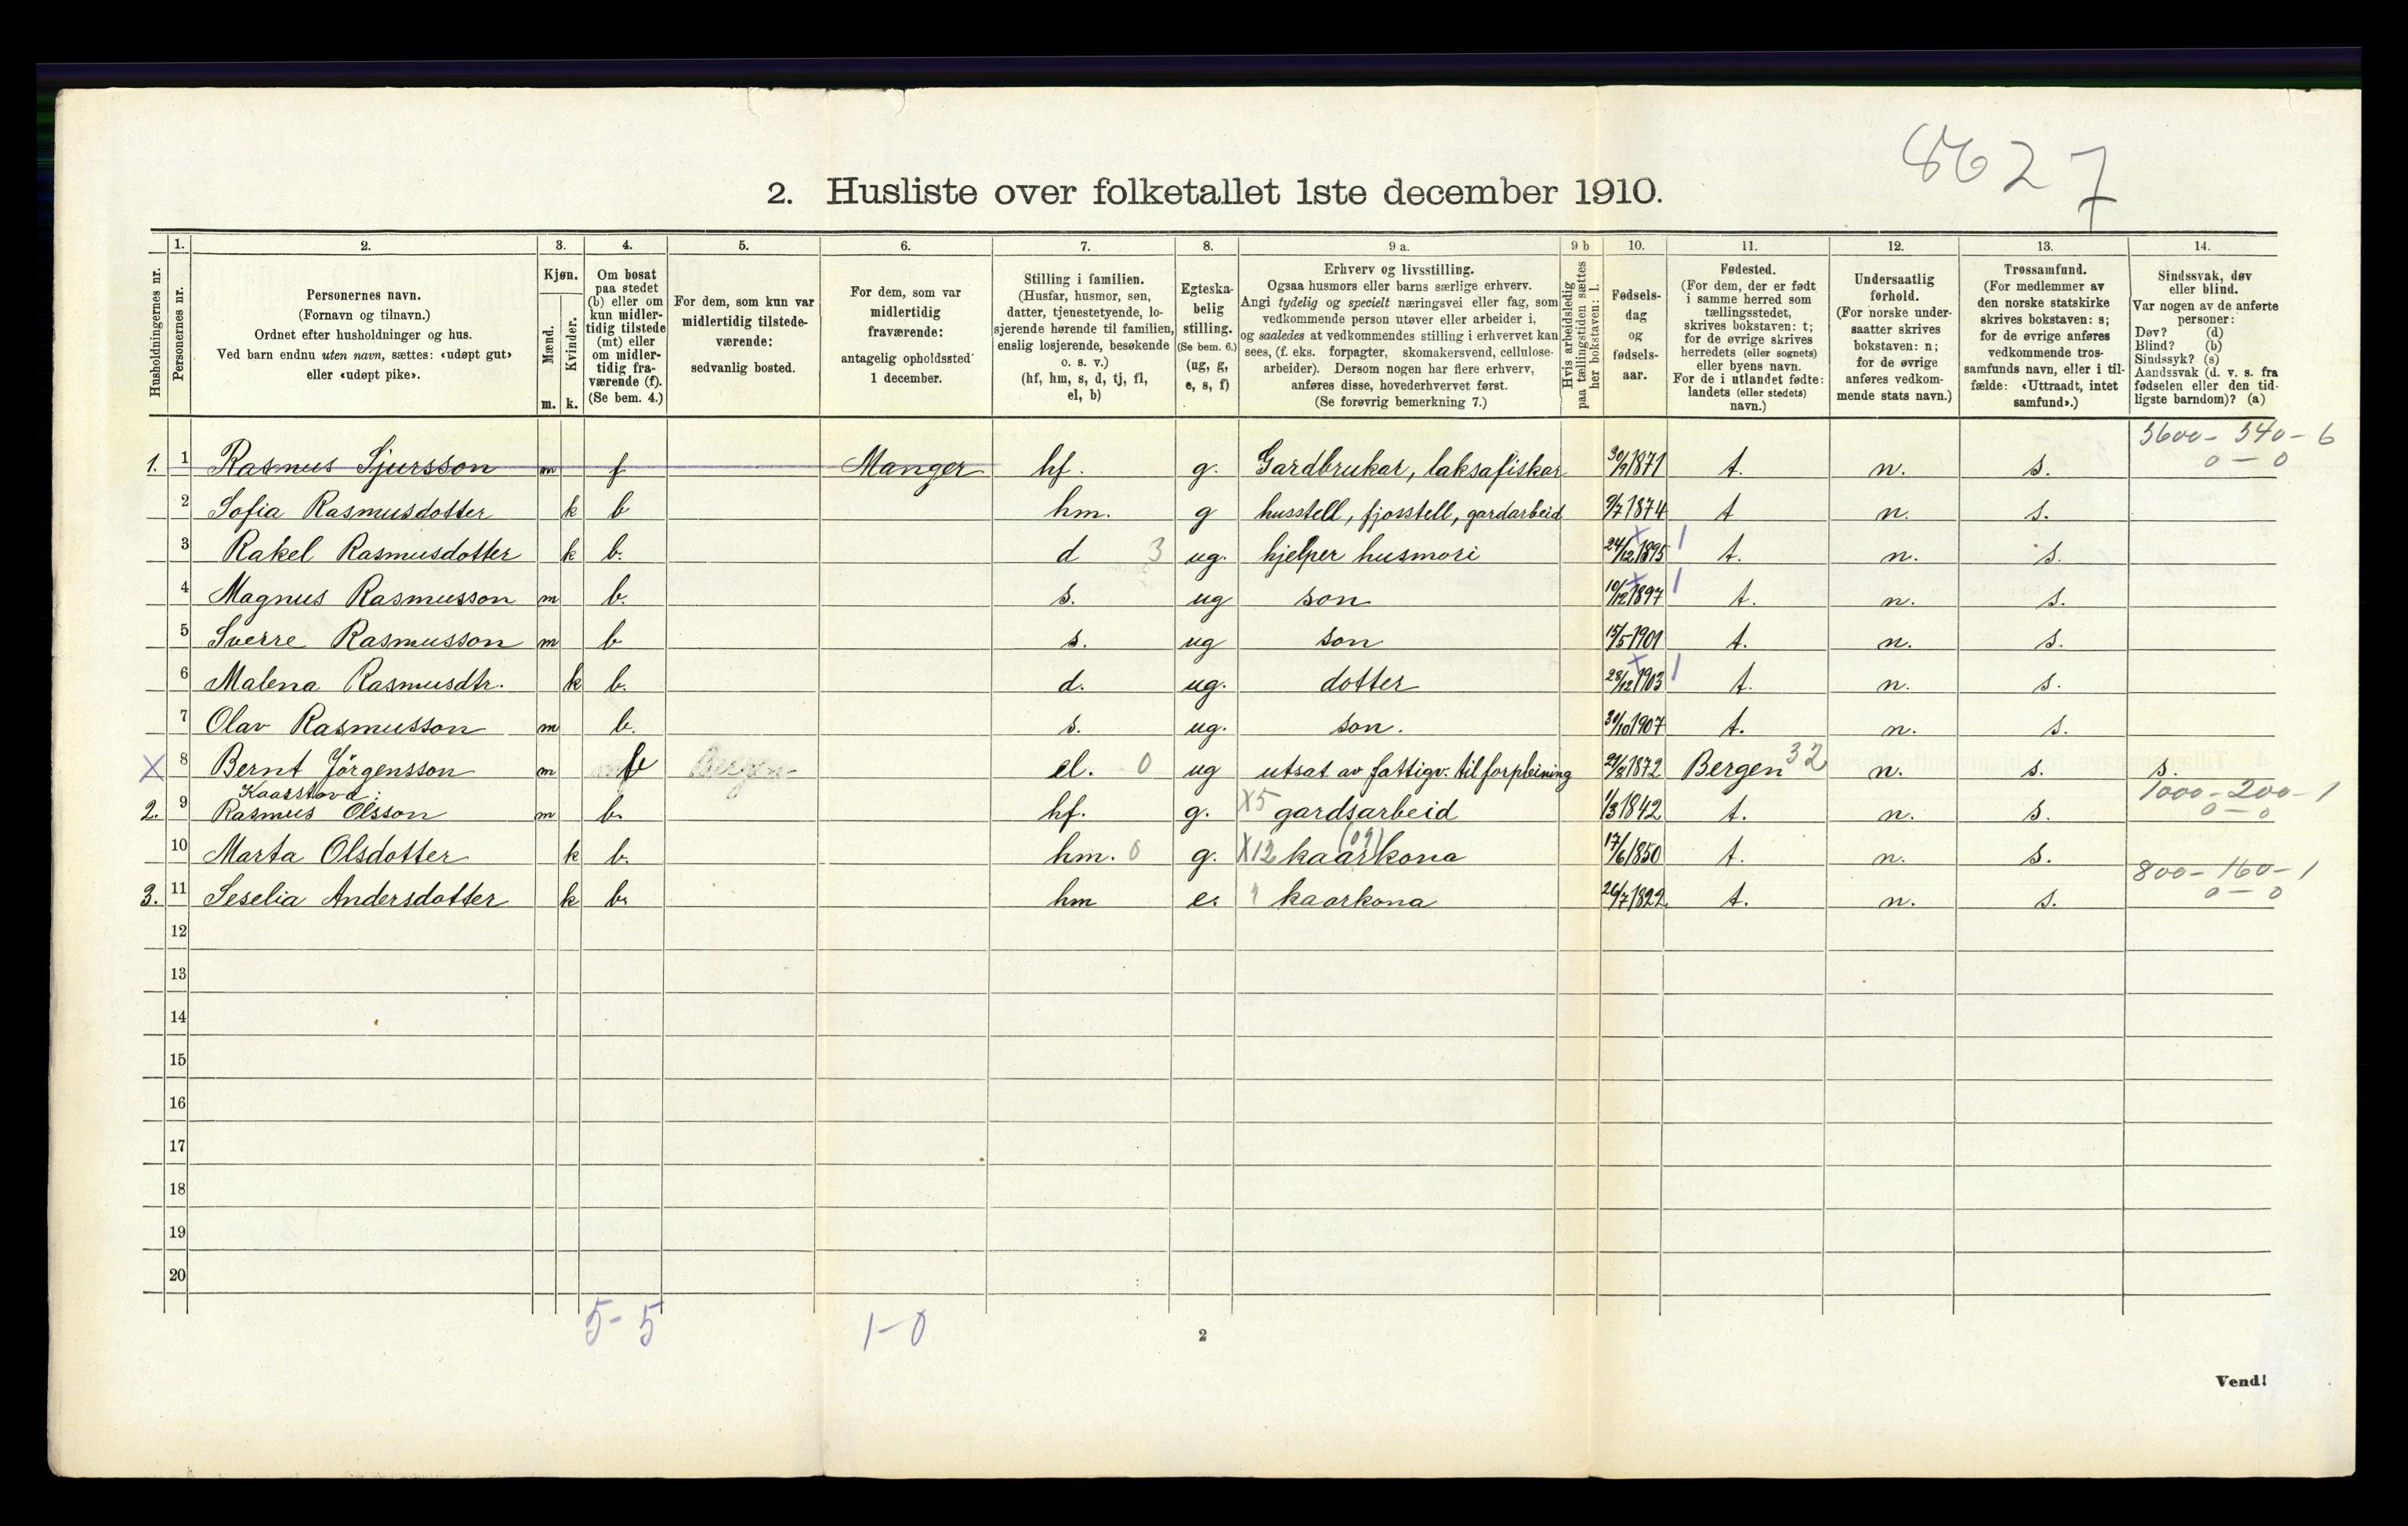 8627
2. Husliste over folketallet 1ste december 1910.
Husholdningernes nr.
1. Personernes nr.
2. Personernes navn. (Fornavn og tilnavn.) Ordnet efter husholdninger og hus. Ved barn endnu uten navn, sættes: «udøpt gut» eller «udøpt pike».
3. Kjøn. Mænd. m. Kvinder. k.
4. Om bosat paa stedet (b) eller om kun midlertidig tilstede (mt) eller om midlertidig fraværende (f). (Se bem. 4.)
5. For dem, som kun var midlertidig tilstedeværende: sedvanlig bosted.
6. For dem, som var midlertidig fraværende: antagelig opholdssted 1 december.
7. Stilling i familien. (Husfar, husmor, søn, datter, tjenestetyende, losjerende hørende til familien, enslig losjerende, besøkende o. s. v.) (hf, hm, s, d, tj, fl, el, b)
8. Egteskabelig stilling. (Se bem. 6.) (ug, g, e, s, f)
9 a. Erhverv og livsstilling. Ogsaa husmors eller barns særlige erhverv. Angi tydelig og specielt næringsvei eller fag, som vedkommende person utøver eller arbeider i, og saaledes at vedkommendes stilling i erhvervet kan sees, (f. eks. forpagter, skomakersvend, cellulosearbeider). Dersom nogen har flere erhverv, anføres disse, hovederhvervet først. (Se forøvrig bemerkning 7.)
9 b Hvis arbeidsledig paa tællingstiden sættes her bokstaven: l.
10. Fødselsdag og fødselsaar.
11. Fødested. (For dem, der er født i samme herred som tællingsstedet, skrives bokstaven: t; for de øvrige skrives herredets (eller sognets) eller byens navn. For de i utlandet fødte: landets (eller stedets) navn.)
12. Undersaatlig forhold. (For norske undersaatter skrives bokstaven: n; for de øvrige anføres vedkommende stats navn.)
13. Trossamfund. (For medlemmer av den norske statskirke skrives bokstaven: s; for de øvrige anføres vedkommende trossamfunds navn, eller i tilfælde: «Uttraadt, intet samfund».)
14. Sindssvak, døv eller blind. Var nogen av de anførte personer: Døv? (d) Blind? (b) Sindssyk? (s) Aandssvak (d. v. s. fra fødselen eller den tidligste barndom)? (a)
3600 - 340 - 6
0 - 0
1. 1 Rasmus Sjursson m f Manger hf. g. Gardbrukar, laksafiskar 1871 t. n. s.
2 Sofia Rasmusdotter k b hm. g husstell, fjosstell, gardarbeid 9/7 1874 t n. s.
3 Rakel Rasmusdotter k b. d 3 ug. hjelper husmori 24/12 1895 1 t. n. s.
4 Magnus Rasmusson m b. s. ug son 10/12 1897 1 t. n. s.
5 Sverre Rasmusson m b s. ug son 15/5 1901 t. n. s.
6 Malena Rasmusdtr. k b. d. ug. dotter 28/12 1903 1 t. n. s.
7 Olav Rasmusson m b. s. ug. son. 30/10 1907 t. n. s.
X 8 Bernt Jörgensson m b Bergen el. 0 ug utsat av fattigv. til forpleining 1872 Bergen 32 n. s. s.
Kaarstova:
1000 - 200 - 1
0 - 0
2. 9 Rasmus Olsson m b. hf. g. X5 gardsarbeid 1/3 1842 t. n. s.
10 Marta Olsdotter k b. hm. 0 g. X12 kaarkona (09) 17/6 1850 t. n. s.
800 - 160 - 1
0 - 0
3. 11 Seselia Andersdotter k b. hm e. kaarkona 26/7 1822 t. n. s.
12
13
14
15
16
17
18
19
20
5-5 1-0
2
Vend!